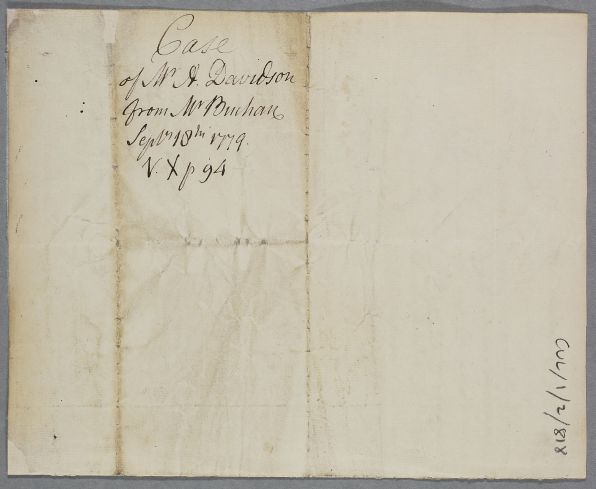 Case
of Mr A. Davidson
from Mr Buchan
Septr 18th 1779.
V. X p 94
CUL/1/2/818